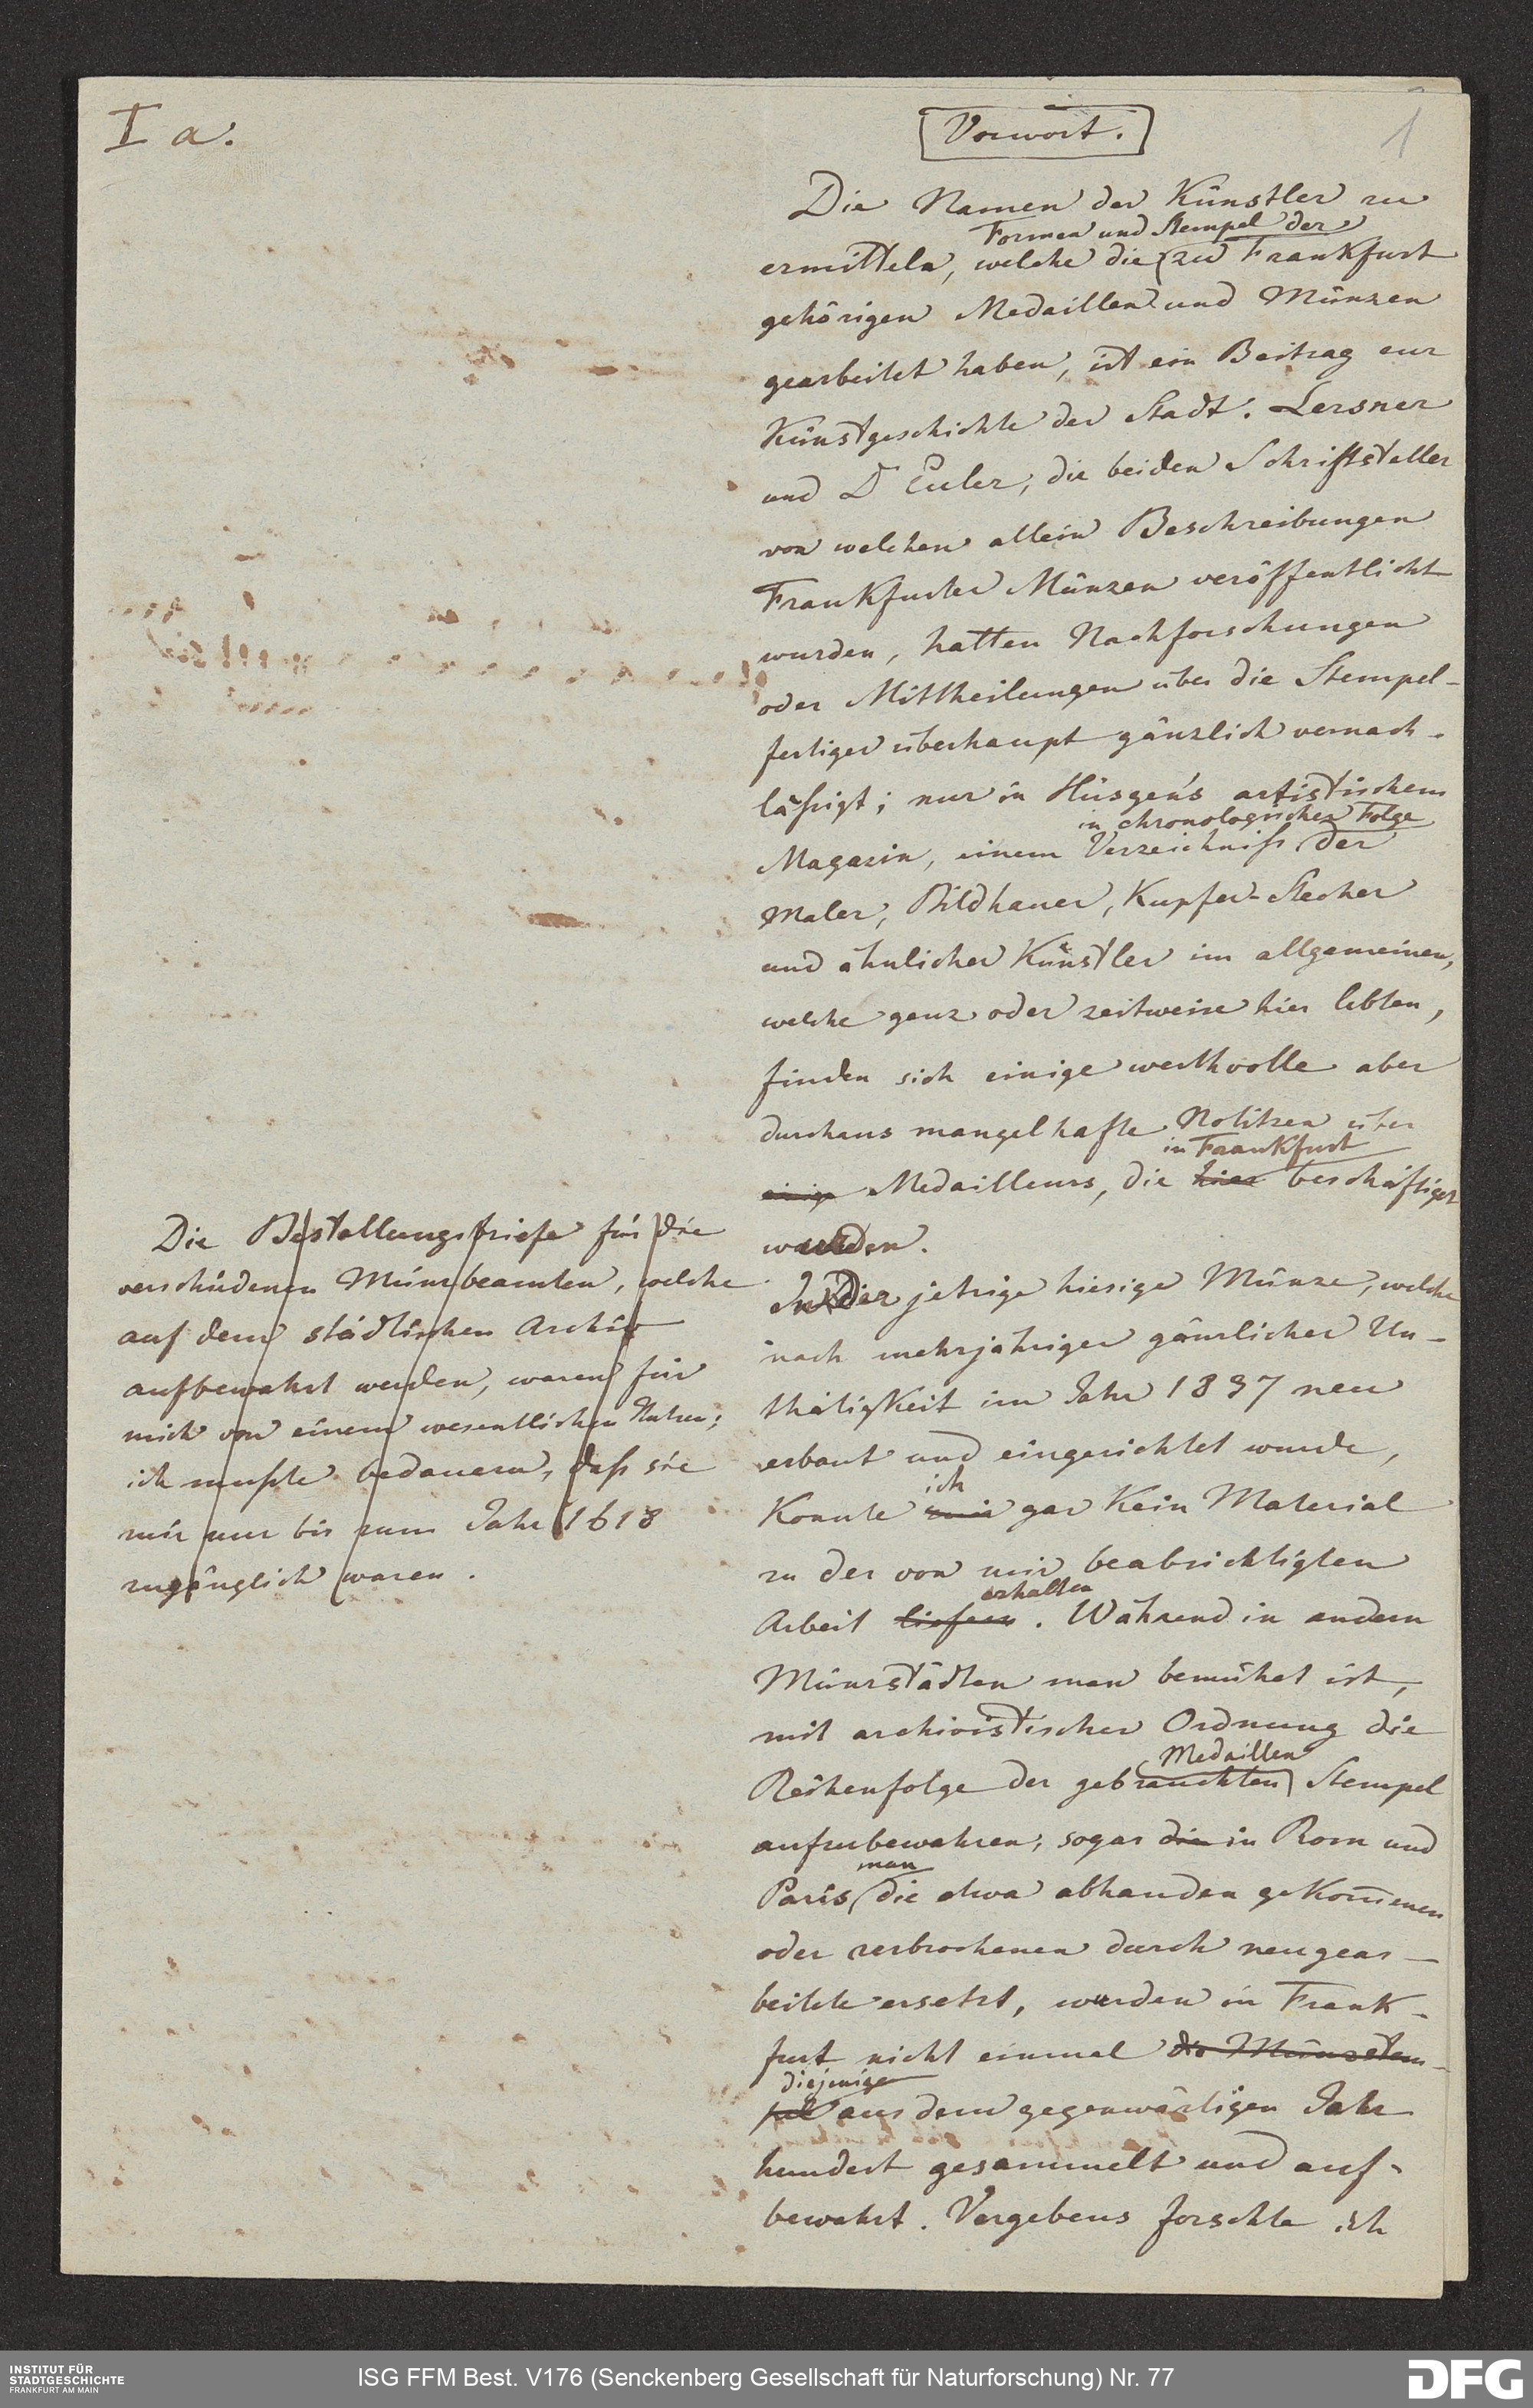 I a.
Vorwort.
1
Die Namen der Künstler zu
Formen und Stempel der
ermitteln, welche die zu Frankfurt
gehörigen Medaillen und Münzen
gearbeitet haben, ist ein Beitrag zur
Kunstgeschichte der Stadt. Lersner
und Dr Euler, die beiden Schriftsteller
von welchen allein Beschreibungen
Frankfurter Münzen veröffentlicht
wurden, hatten Nachforschungen
oder Mittheilungen über die Stempel-
fertiger überhaupt gänzlich vernach-
läßigt; nur in Hüsgen's artistischem
in chronologischer Folge
Magazin, einem Verzeichniß der
Maler, Bildhauer, Kupfer-Stecher
und ähnlicher Künstler im allgemeinen,
welche ganz oder zeitweise hier lebten,
finden sich einige werthvolle aber
durchaus mangelhafte Notitzen über
in Frankfurt
einige Medailleurs, die hier beschäftiget
wurden.
In der jetzige hiesige Münze, welche
nach mehrjähriger gänzlicher Un-
thätigkeit im Jahr 1837 neu
erbaut und eingerichtet wurde,
ich
konnte mir gar kein Material
zu der von mir beabsichtigten
erhalten
Arbeit liefern. Während in andern
Münzstädten man bemühet ist,
mit archivistischer Ordnung die
Medaillen
Reihenfolge der gebrauchten Stempel
aufzubewahren; sogar die in Rom und
man
Paris die etwa abhanden gekommenen
oder zerbrochenen durch neugear-
beitete ersetzt, wurden in Frank-
furt nicht einmal die Münzstem-
diejenige
pel aus dem gegenwärtigen Jahr
hundert gesammelt und auf-
bewahrt. Vergebens forschte ich
Die Bestallungsbriefe für die
verschiedenen Münzbeamten, welche
auf dem städtischen Archiv
aufbewahrt werden, waren für
mich von einem wesentlichen Nutzen;
ich mußte bedauern, daß sie
mir nur bis zum Jahr 1618
zugänglich waren.
INSTITUT FÜR
STADTGESCHICHTE
FRANKFURT AM MAIN
ISG FFM Best. V176 (Senckenberg Gesellschaft für Naturforschung) Nr. 77
DFG